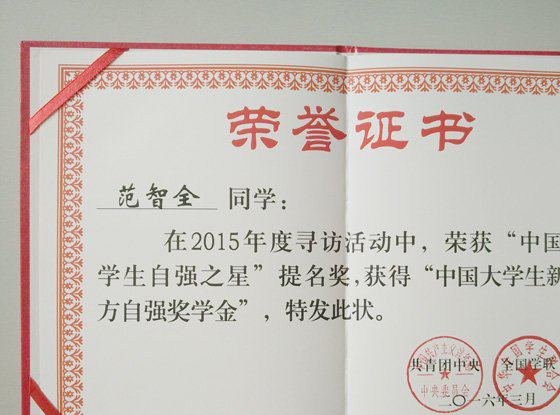 荣誉证书
范智全 同学：
在2015年度寻访活动中，荣获“中国
学生自强之星”提名奖，获得“中国大学生新
方自强奖学金”，特发此状。
共青团中央 全国学联
中央委员会
二〇一六年三月